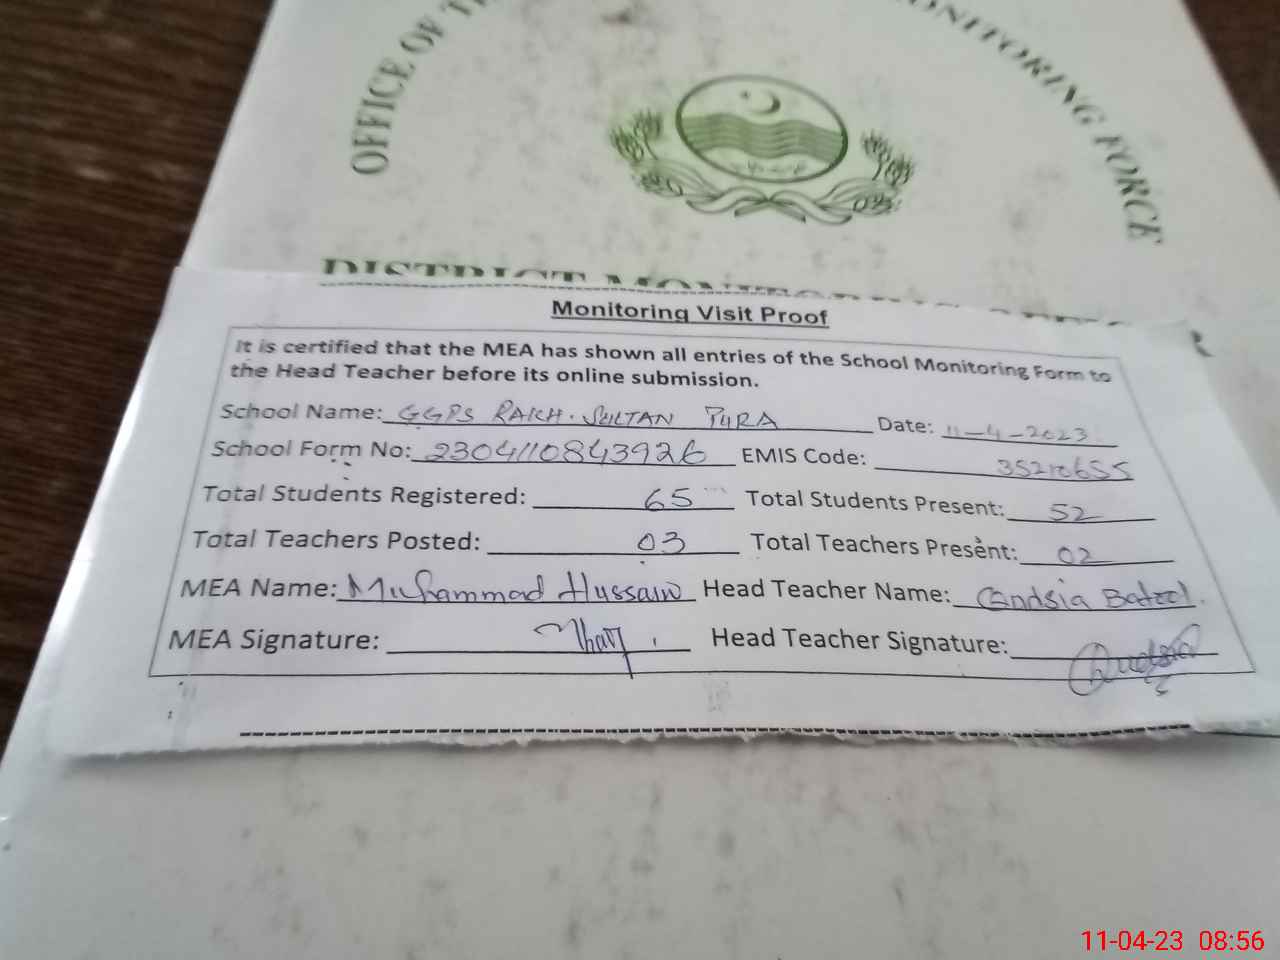 OFFICE OF
MONITORING FORCE
DISTRICT
Monitoring Visit Proof
It is certified that the MEA has shown all entries of the School Monitoring Form to
the Head Teacher before its online submission.
School Name: GGPS RAKH. SULTAN PURA Date: 11-4-2023
School Form No: 2304110843926 EMIS Code: 35210655
Total Students Registered: 65 Total Students Present: 52
Total Teachers Posted: 03 Total Teachers Present: 02
MEA Name: Muhammad Hussain Head Teacher Name: Batool.
MEA Signature: Head Teacher Signature:
11-04-23 08:56